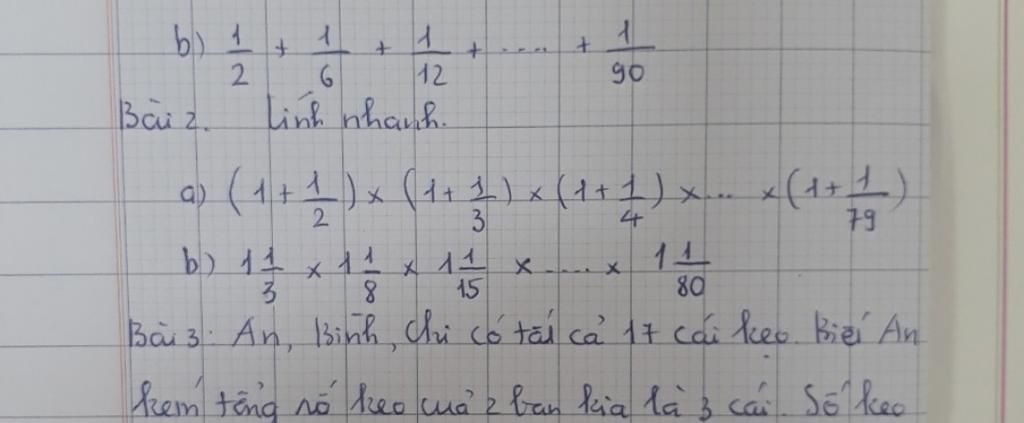 b) 1/2 + 1/6 + 1/12 + .... + 1/90
Bài 2. Tính nhanh.
a) (1 + 1/2) × (1 + 1/3) × (1 + 1/4) × ... × (1 + 1/79)
b) 1 1/3 × 1 1/8 × 1 1/15 × .... × 1 1/80
Bài 3: An, Bình, Chi có tất cả 17 cái kẹo. Biết An
kém tổng số kẹo của 2 bạn kia là 3 cái. Số kẹo